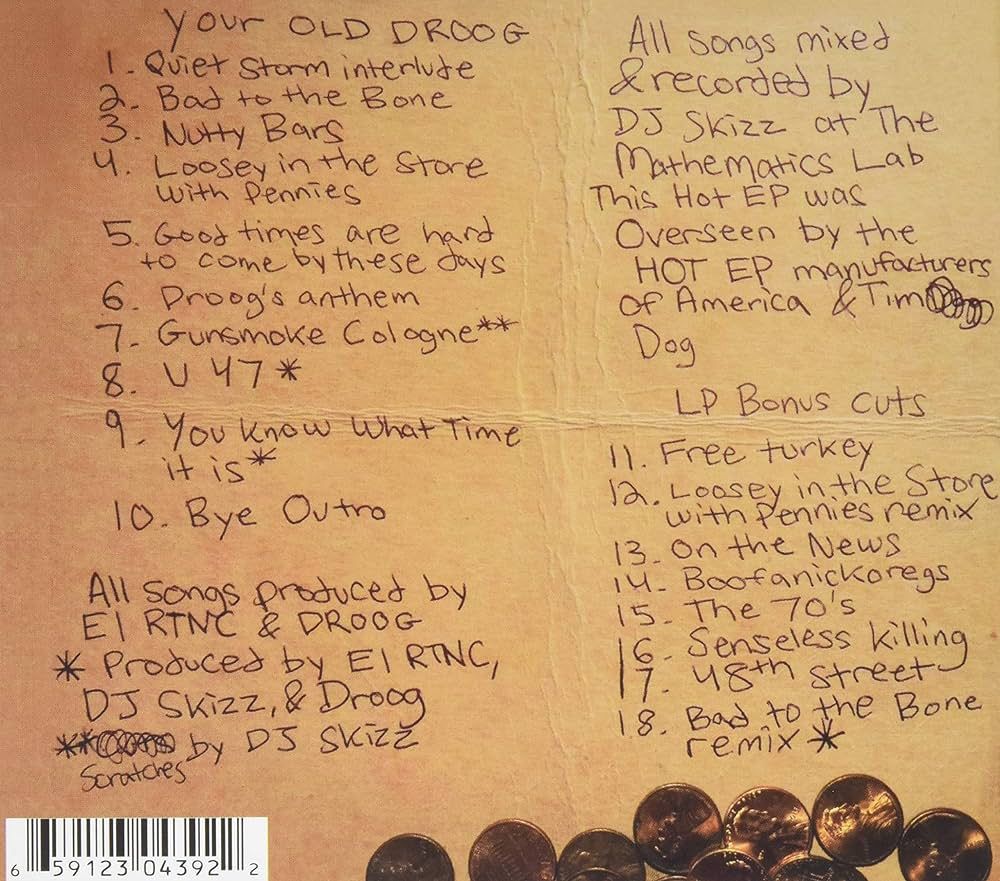 Your OLD DROOG
1. Quiet Storm interlude
2. Bad to the Bone
3. Nutty Bars
4. Loosey in the Store
with Pennies
5. Good times are hard
to come by these days
6. Droog's anthem
7. Gunsmoke Cologne**
8. U 47*
9. You Know What Time
it is*
10. Bye Outro
All Songs produced by
El RTNC & DROOG
* Produced by El RTNC,
DJ Skizz, & Droog
** by DJ Skizz
Scratches
6 59123 04392 2
All songs mixed
& recorded by
DJ Skizz at The
Mathematics Lab
This Hot EP was
Overseen by the
HOT EP manufacturers
of America & Tim
Dog
LP Bonus cuts
11. Free turkey
12. Loosey in the Store
with Pennies remix
13. On the News
14. Boofanickoregs
15. The 70's
16. Senseless killing
17. 48th Street
18. Bad to the Bone
remix*